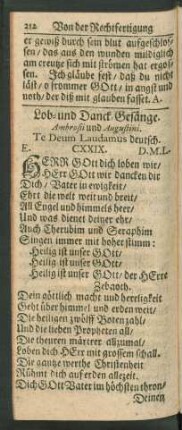 212 Von der Rechtfertigung
er gewiß durch sein blut aufgeschlos-
sen / das aus den wunden mildiglich
am creutze sich mit strömen hat ergos-
sen. Ich gläube fest / daß du nicht
läst / o frommer GOtt / in angst und
noth / der dich mit glauben fasset. A.
Lob- und Danck-Gesänge.
Ambrosii und Augustini.
Te Deum Laudamus deutsch.
E. CXXIX. D.M.L.
HERR GOtt dich loben wir /
HErr GOtt wir dancken dir
Dich / Vater in ewigkeit /
Ehrt die welt weit und breit /
All Engel und himmels heer /
Und was dienet deiner ehr /
Auch Cherubim und Seraphim
Singen immer mit hoher stimm:
Heilig ist unser GOtt /
Heilig ist unser GOtt /
Heilig ist unser GOtt / der HErre
Zebaoth.
Dein göttlich macht und herrligkeit
Geht über himmel und erden weit /
Die heiligen zwölff Boten zahl /
Und die lieben Propheten all /
Die theuren märterer allzumal /
Loben dich HErr mit grossem schall.
Die gantze werthe Christenheit
Rühmt dich auf erden allezeit.
Dich GOtt Vater im höchsten thron /
Deinen